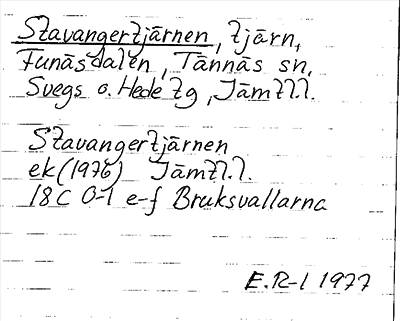 Stavangertjärnen, tjärn,
Funäsdalen, Tännäs sn,
Svegs o. Hede tg, Jämtl.l.
Stavangertjärnen
ek(1976) Jämtl.l.
18C 0-1 e-f Bruksvallarna
E.R-l 1977